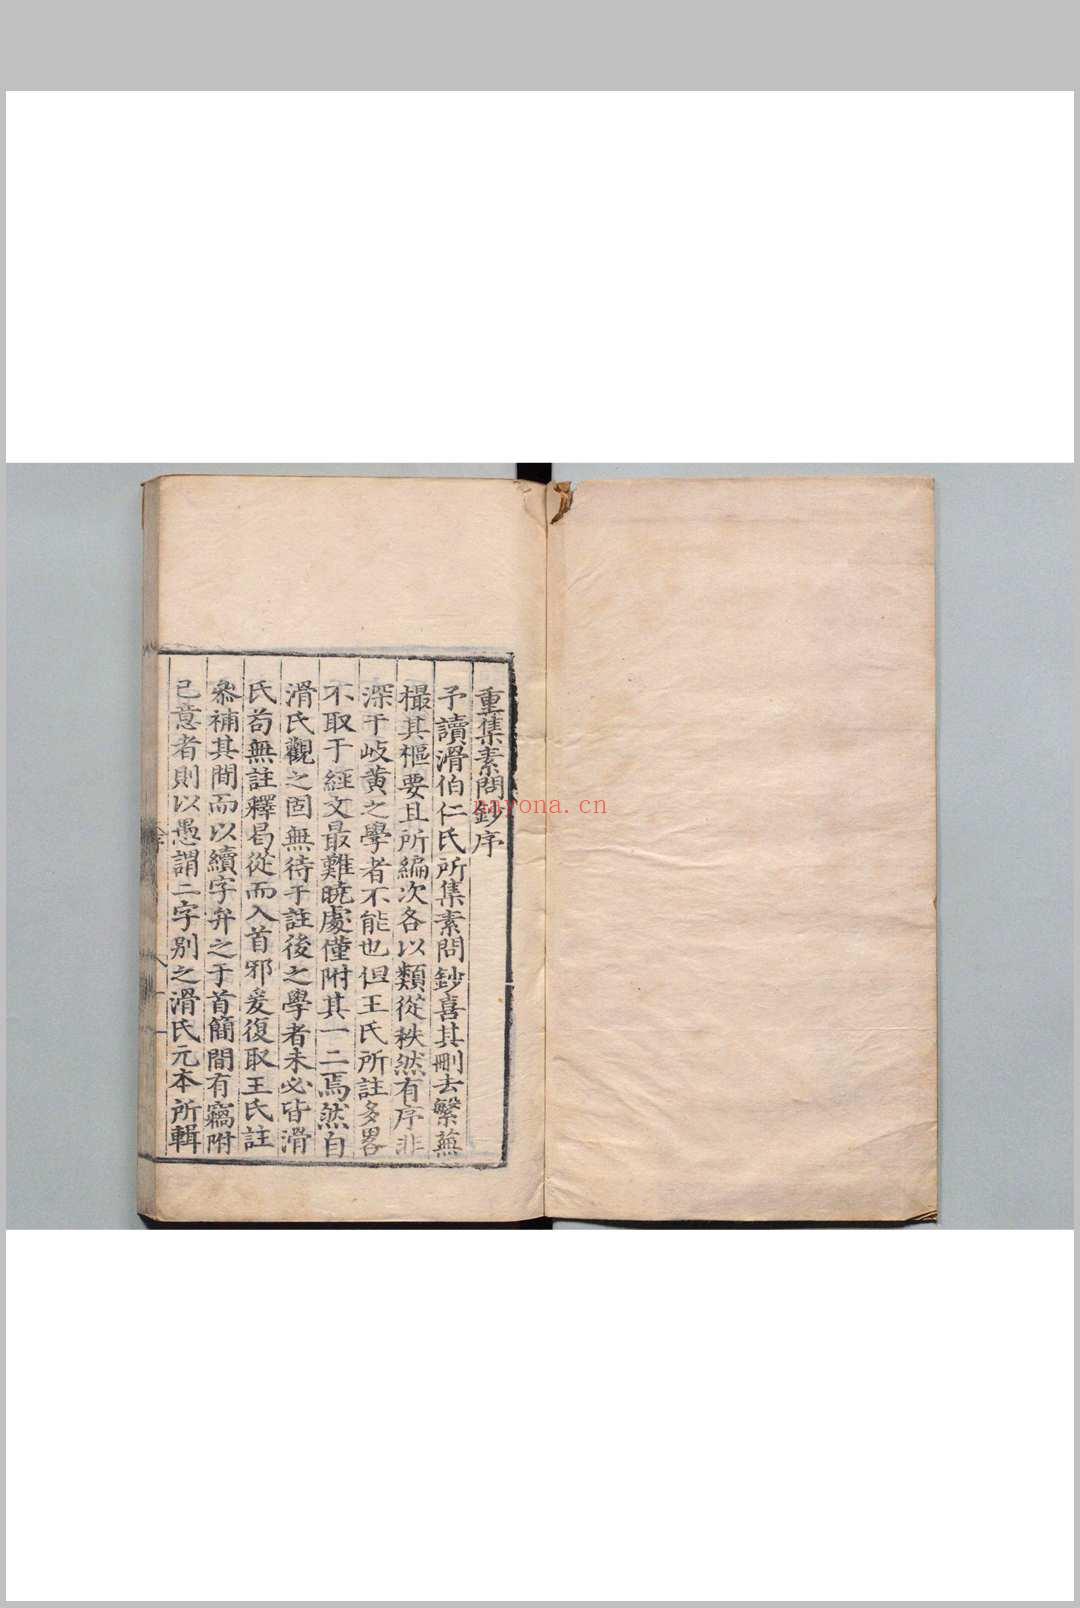 重集素問鈔序
予讀滑伯仁氏所集素問鈔喜其刪去繁蕪
樶其樞要且所編次各以類從秩然有序非
深于岐黄之學者不能也但王氏所註多畧
不取于經文最難曉處僅附其一二焉然自
滑氏觀之固無待于註後之學者未必皆滑
氏苟無註釋曷從而入首邪爰復取王氏註
叅補其間而以續字弁之于首簡間有竊附
己意者則以愚謂二字别之滑氏元本所輯
nayona.cn